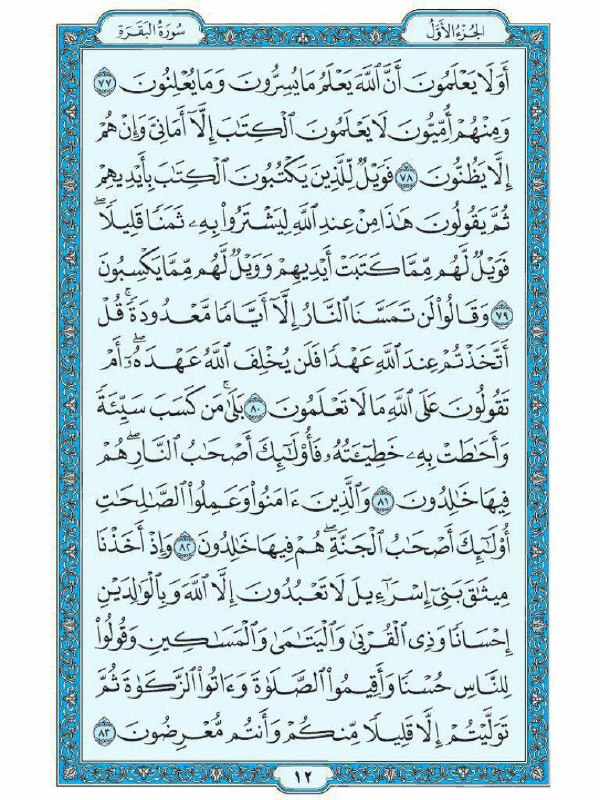 سُورَةُ البَقَرَةِ
الجُزْءُ الأَوَّلُ
أَوَلَا يَعْلَمُونَ أَنَّ ٱللَّهَ يَعْلَمُ مَا يُسِرُّونَ وَمَا يُعْلِنُونَ ٧٧
وَمِنْهُمْ أُمِّيُّونَ لَا يَعْلَمُونَ ٱلْكِتَٰبَ إِلَّآ أَمَانِىَّ وَإِنْ هُمْ
إِلَّا يَظُنُّونَ ٧٨ فَوَيْلٌ لِّلَّذِينَ يَكْتُبُونَ ٱلْكِتَٰبَ بِأَيْدِيهِمْ
ثُمَّ يَقُولُونَ هَٰذَا مِنْ عِندِ ٱللَّهِ لِيَشْتَرُوا۟ بِهِۦ ثَمَنًا قَلِيلًا ۖ
فَوَيْلٌ لَّهُم مِّمَّا كَتَبَتْ أَيْدِيهِمْ وَوَيْلٌ لَّهُم مِّمَّا يَكْسِبُونَ
٧٩ وَقَالُوا۟ لَن تَمَسَّنَا ٱلنَّارُ إِلَّآ أَيَّامًا مَّعْدُودَةً ۚ قُلْ
أَتَّخَذْتُمْ عِندَ ٱللَّهِ عَهْدًا فَلَن يُخْلِفَ ٱللَّهُ عَهْدَهُۥٓ ۖ أَمْ
تَقُولُونَ عَلَى ٱللَّهِ مَا لَا تَعْلَمُونَ ٨٠ بَلَىٰ ۚ مَن كَسَبَ سَيِّئَةً
وَأَحَٰطَتْ بِهِۦ خَطِيٓـَٔتُهُۥ فَأُو۟لَٰٓئِكَ أَصْحَٰبُ ٱلنَّارِ ۖ هُمْ
فِيهَا خَٰلِدُونَ ٨١ وَٱلَّذِينَ ءَامَنُوا۟ وَعَمِلُوا۟ ٱلصَّٰلِحَٰتِ
أُو۟لَٰٓئِكَ أَصْحَٰبُ ٱلْجَنَّةِ ۖ هُمْ فِيهَا خَٰلِدُونَ ٨٢ وَإِذْ أَخَذْنَا
مِيثَٰقَ بَنِىٓ إِسْرَٰٓءِيلَ لَا تَعْبُدُونَ إِلَّا ٱللَّهَ وَبِٱلْوَٰلِدَيْنِ
إِحْسَانًا وَذِى ٱلْقُرْبَىٰ وَٱلْيَتَٰمَىٰ وَٱلْمَسَٰكِينِ وَقُولُوا۟
لِلنَّاسِ حُسْنًا وَأَقِيمُوا۟ ٱلصَّلَوٰةَ وَءَاتُوا۟ ٱلزَّكَوٰةَ ثُمَّ
تَوَلَّيْتُمْ إِلَّا قَلِيلًا مِّنكُمْ وَأَنتُم مُّعْرِضُونَ ٨٣
١٢